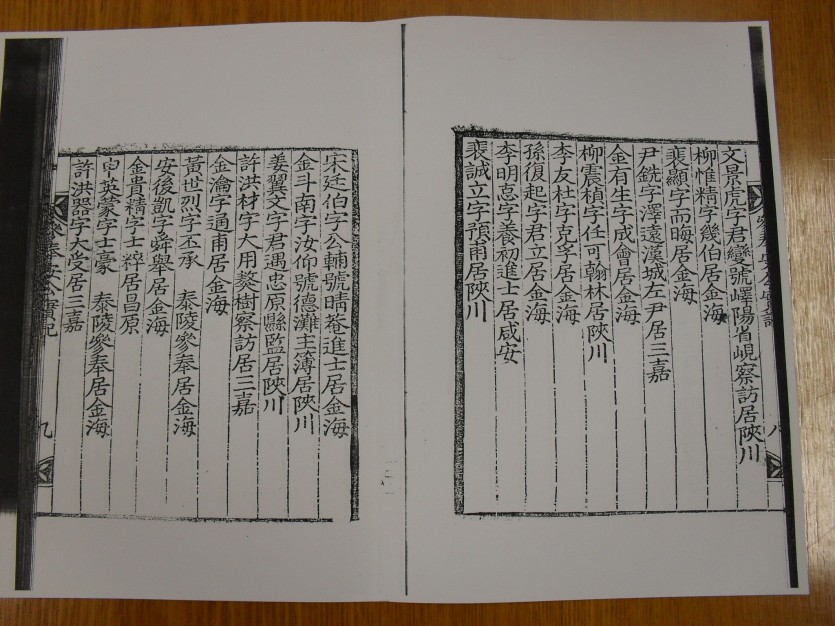 文景虎字君變號嶧陽省峴察訪居陜川
柳惟精字幾伯居金海
裵顯字而晦居金海
尹銑字澤遠漢城左尹居三嘉
金有生字成會居金海
柳震楨字任可翰林居陜川
李友杜字克孚居金海
孫復起字君立居金海
李明怘字養初進士居咸安
裵誠立字預甫居陜川
八
宋廷伯字公輔號晴菴進士居金海
金斗南字汝仰號德灘主簿居陜川
姜翼文字君遇忠原縣監居陜川
許洪材字大用獒樹察訪居三嘉
金瀹字通甫居金海
黃世烈字丕承 泰陵參奉居金海
安後凱字舜舉居金海
金貴精字士粹居昌原
申英蒙字士豪 泰陵參奉居金海
許洪器字大受居三嘉
參奉安公實紀
九